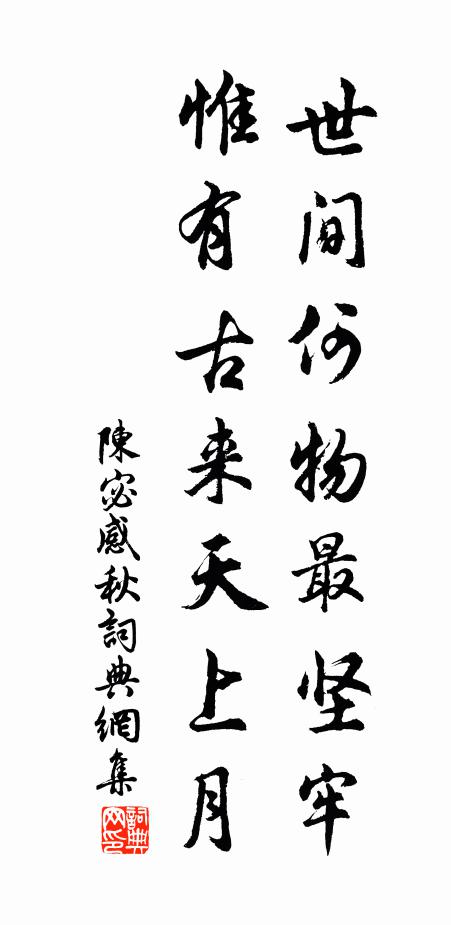 世间何物最坚牢
惟有古来天上月
陳宓感秋詞典網集
詞典网印